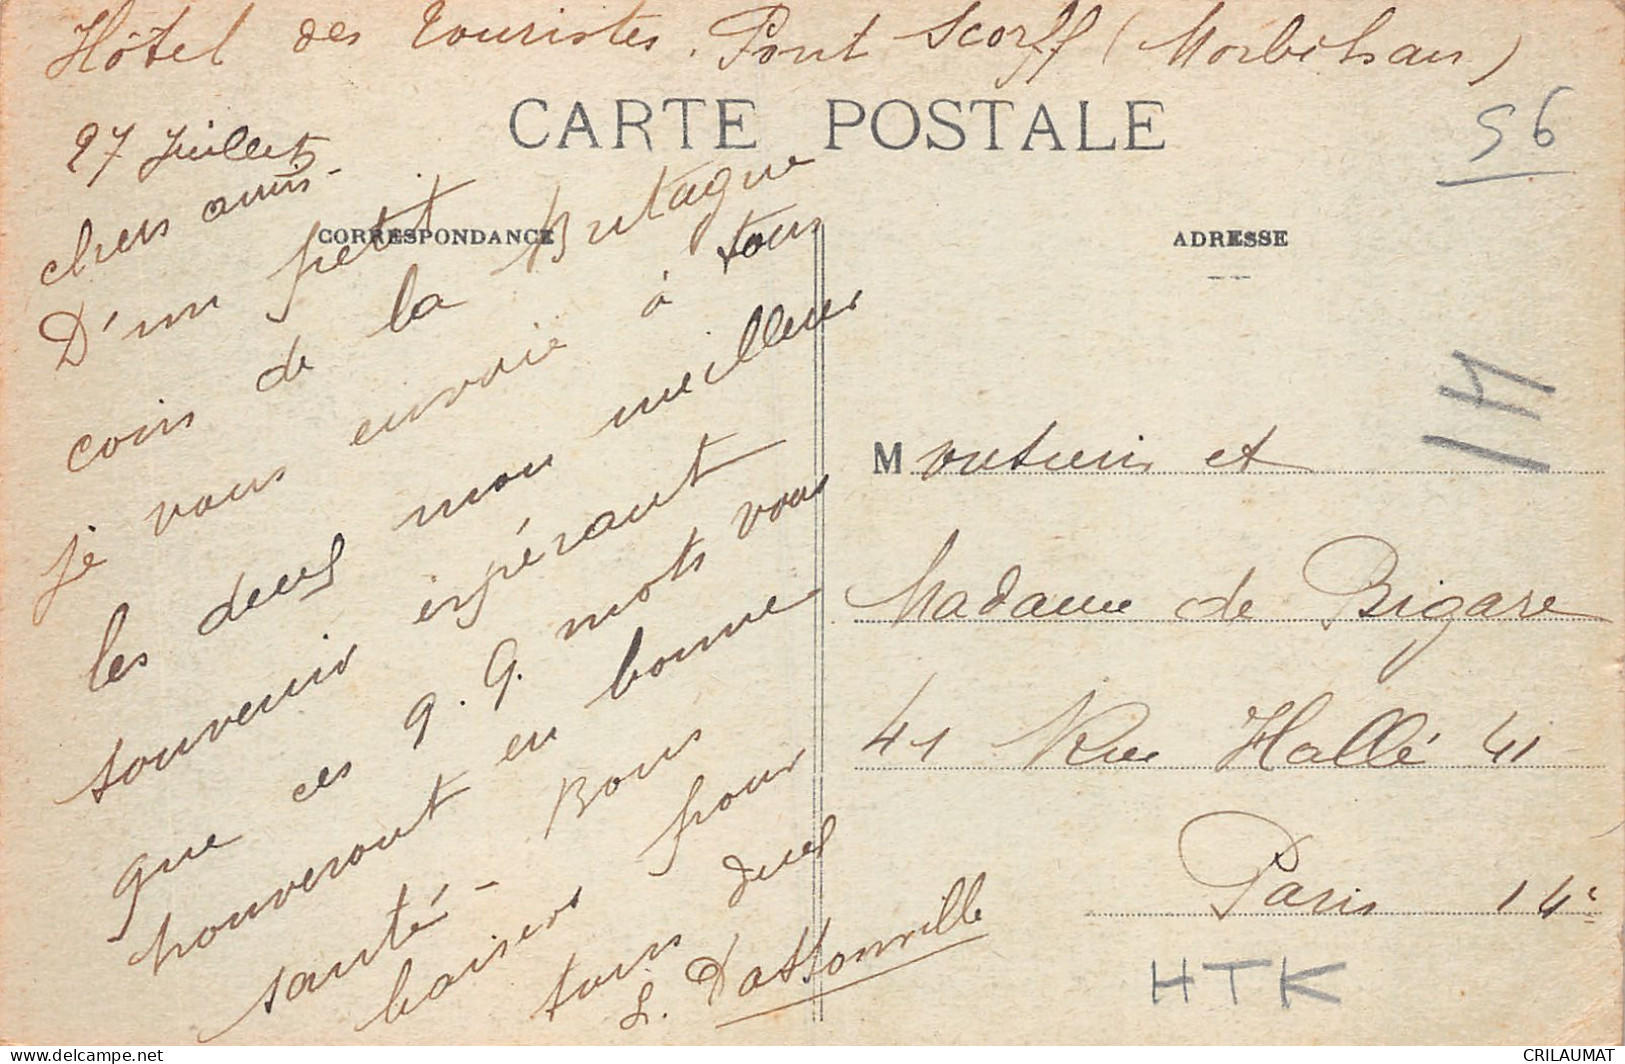 Hôtel des Touristes. Pont Scorff (Morbihan)
CARTE POSTALE
56
27 Juillet
CORRESPONDANCE
ADRESSE
chers amis -
D'un petit
coin de la Bretagne
je vous envoie à tous
les deux mon meilleur
souvenir espérant
que ces q.q. mots vous
trouveront en bonne
santé - Bons
baisers pour
tous deux
L. Dattonville
Monsieur et
Madame de Bigare
41 Rue Hallé 41
Paris 14e
HTK
CRILAUMAT